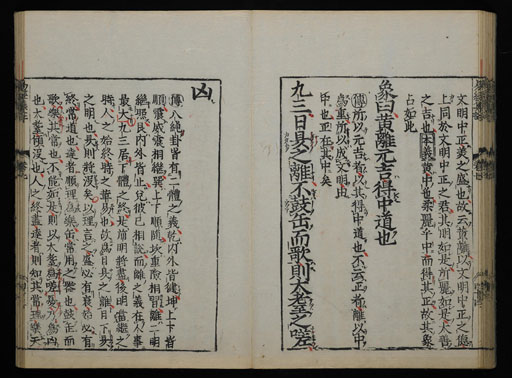 文明中正美之盛也故云黃離以文明中正之德
上同於文明中正之君其明如是所麗如是大善
之吉也本義黃中色柔麗乎中而得其正故其象
占如此
象曰黃離元吉得中道也
傳所以元吉者以其得中道也不云正者離以中
爲重所以成文明由
中也正在其中矣
九三日昃之離不鼓缶而歌則大耋之嗟
凶
傳八純卦皆有二體之義乾内外皆健坤上下皆
順震威震相繼巽上下順隨坎重險相習離二明
繼照艮内外皆止兌彼己相說而離之義在人事
最大九三居下體之終是前明將盡後明當繼之
時人之始終時之革易也故爲日昃之離日下昃
之明也昃則將沒矣以理言之盛必有衰始必有
終常道也達者順理爲樂缶常用之器也鼓缶而
歌樂其常也不能如是則以大耋爲嗟憂乃爲凶
也大耋傾沒也人之終盡達者則知其常理樂天